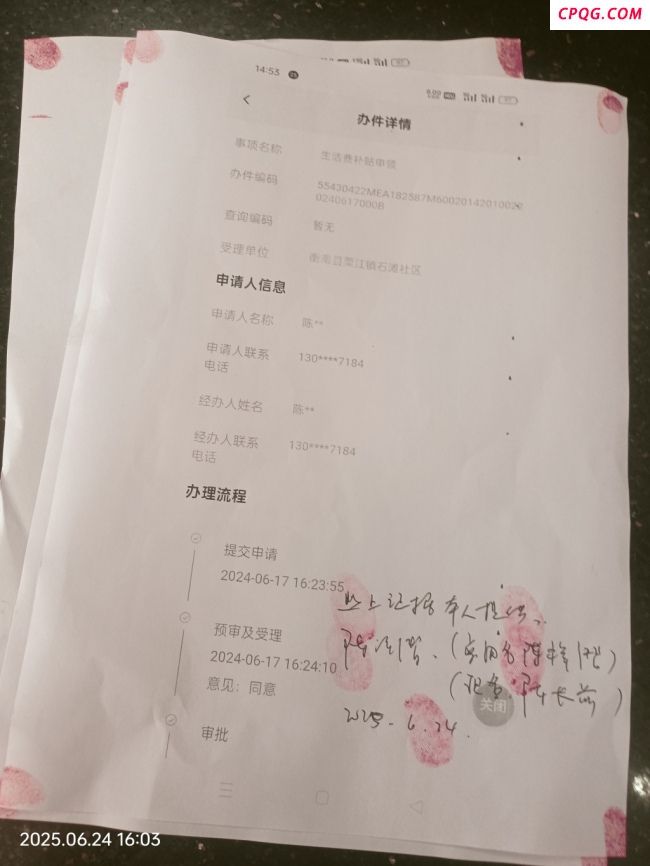 CPQG.COM
14:53
办件详情
事项名称 生活费补贴申领
办件编码 55430422MEA182587M60020142010022
0240617000B
查询编码 暂无
受理单位 衡南县栗江镇石滩社区
申请人信息
申请人名称 陈**
申请人联系 130****7184
电话
经办人姓名 陈**
经办人联系 130****7184
电话
办理流程
提交申请
2024-06-17 16:23:55
以上证据本人提供.
预审及受理
2024-06-17 16:24:10
意见：同意
关闭
2025.6.24.
审批
2025.06.24 16:03